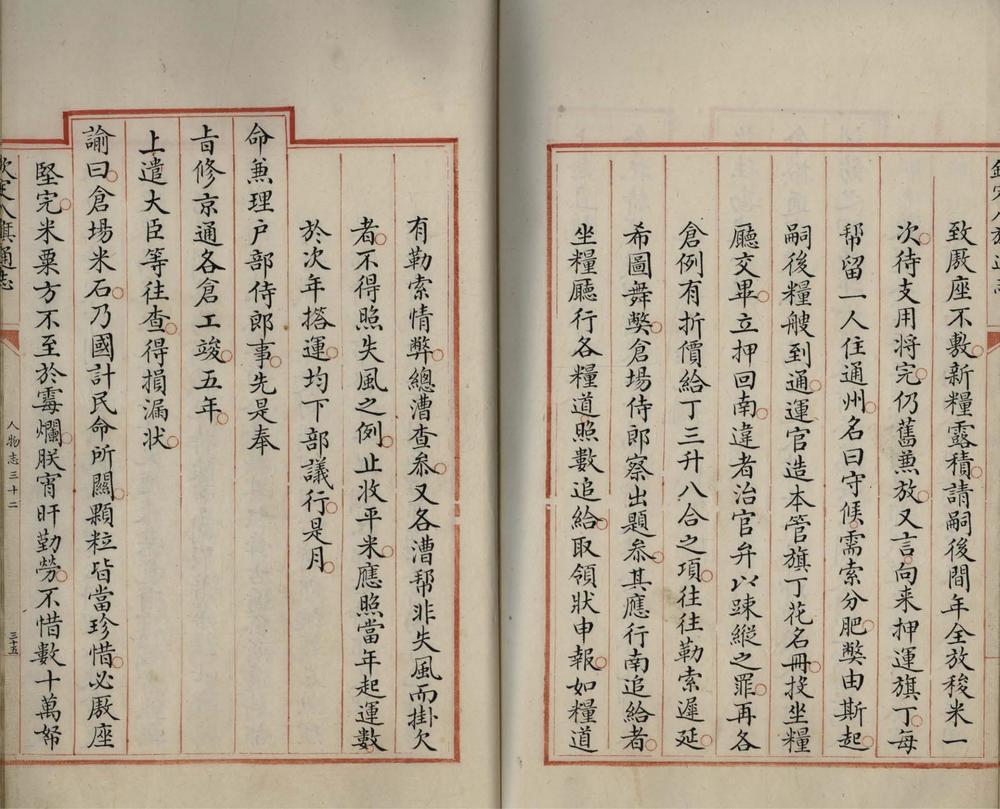 致厫座不敷新糧露積請嗣後間年全放稜米一
次待支用將完仍舊兼放又言向来押運旗丁每
帮留一人住通州名曰守候需索分肥獘由斯起
嗣後糧艘到通運官造本管旗丁花名冊投坐糧
廳交畢立押回南違者治官弁以踈縱之罪再各
倉例有折價給丁三升八合之項往往勒索遲延
希圖舞獘倉場侍郎察出題叅其應行南追給者
坐糧廳行各糧道照數追給取領狀申報如糧道
有勒索情弊總漕查叅又各漕帮非失風而掛欠
者不得照失風之例止收平米應照當年起運數
於次年搭運均下部議行是月
命兼理户部侍郎事先是奉
旨修京通各倉工竣五年
上遣大臣等往查得損漏狀
諭曰倉場米石乃國計民命所關顆粒皆當珍惜必厫座
堅完米粟方不至於霉爛朕宵旰勤勞不惜數十萬帑
欽定八旗通志
人物志三十二
三十五